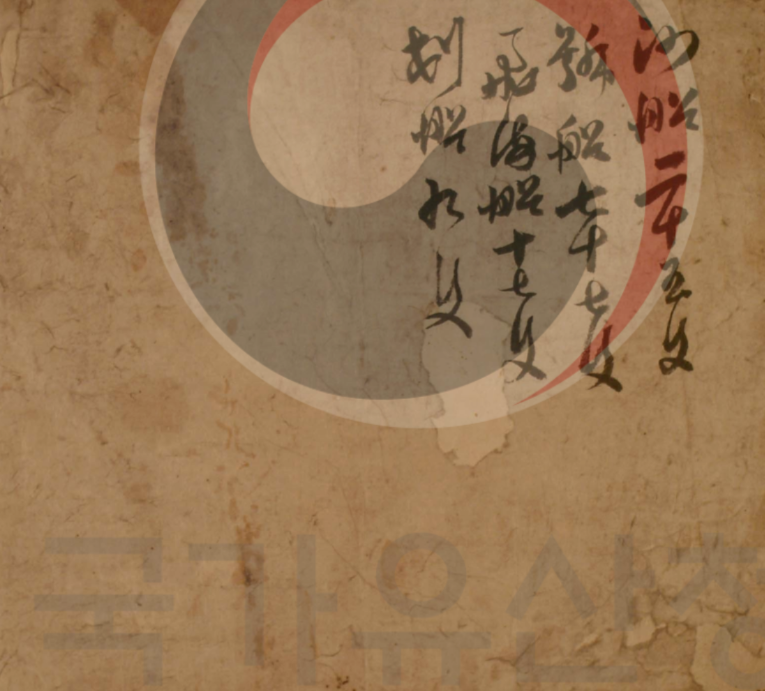 沙船二十五隻
號船七十七隻
飛海船十七隻
剗船九隻
국가유산청